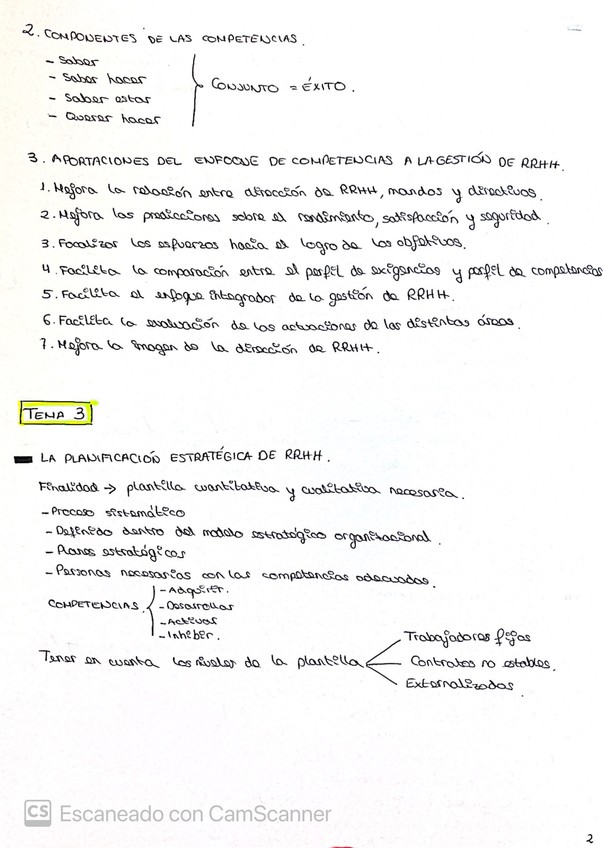 2. COMPONENTES DE LAS COMPETENCIAS.
- Saber
- Saber hacer
- Saber estar
- Querer hacer
CONJUNTO = ÉXITO.
3. APORTACIONES DEL ENFOQUE DE COMPETENCIAS A LA GESTIÓN DE RRHH.
1. Mejora la relación entre dirección de RRHH, mandos y directivos.
2. Mejora las predicciones sobre el rendimiento, satisfacción y seguridad.
3. Focalizar los esfuerzos hacia el logro de los objetivos.
4. Facilita la comparación entre el perfil de exigencias y perfil de competencias
5. Facilita el enfoque integrador de la gestión de RRHH.
6. Facilita la evaluación de las actuaciones de las distintas áreas.
7. Mejora la imagen de la dirección de RRHH.
TEMA 3
LA PLANIFICACIÓN ESTRATÉGICA DE RRHH.
Finalidad → plantilla cuantitativa y cualitativa necesaria.
- Proceso sistemático
- Definido dentro del modelo estratégico organizacional.
- Planes estratégicos
- Personas necesarias con las competencias adecuadas.
COMPETENCIAS.
- Adquirir.
- Desarrollar
- Activar
- Inhibir.
Tener en cuenta los niveles de la plantilla
Trabajadores fijos
Contratos no estables.
Externalizados.
CS Escaneado con CamScanner
2